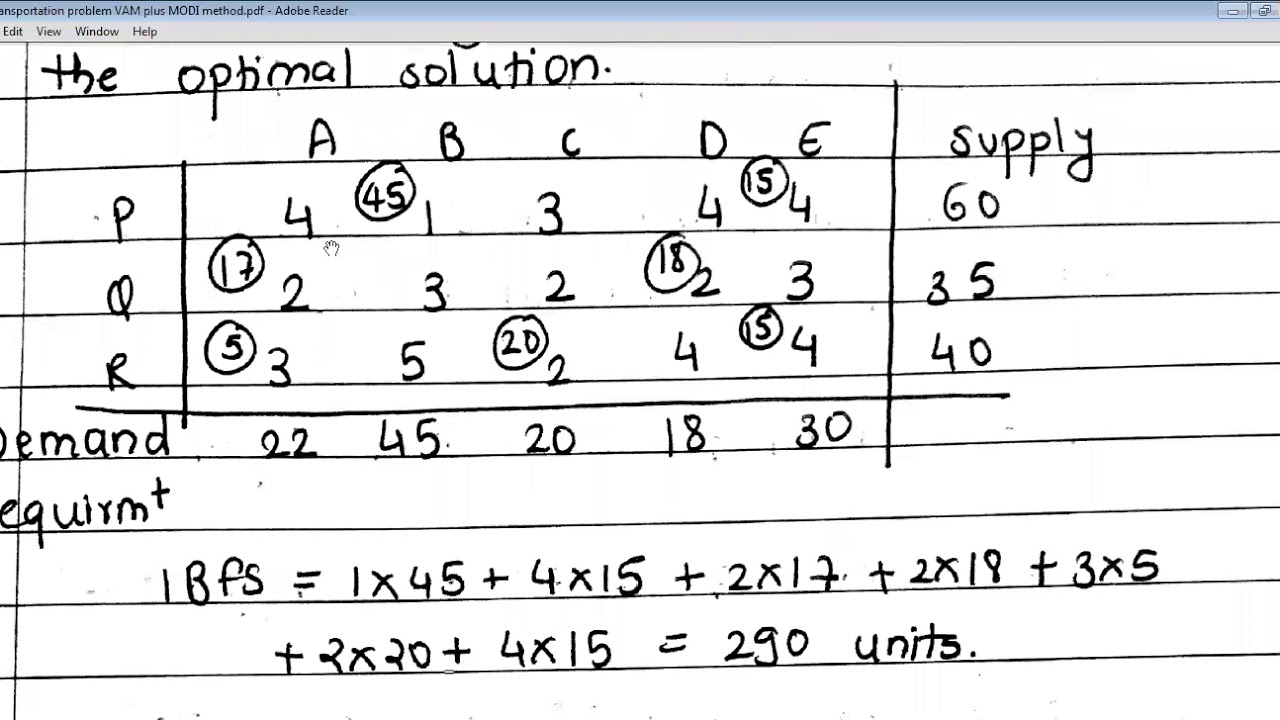 ansportation problem VAM plus MODI method.pdf - Adobe Reader
Edit View Window Help
the optimal solution.
A B C D E supply
P 4 (45) 1 3 4 (15) 4 60
Q (17) 2 3 2 (18) 2 3 35
R (5) 3 5 (20) 2 4 (15) 4 40
Demand 22 45 20 18 30
equirmt
IBfs = 1x45 + 4x15 + 2x17 + 2x18 + 3x5
+ 2x20 + 4x15 = 290 units.